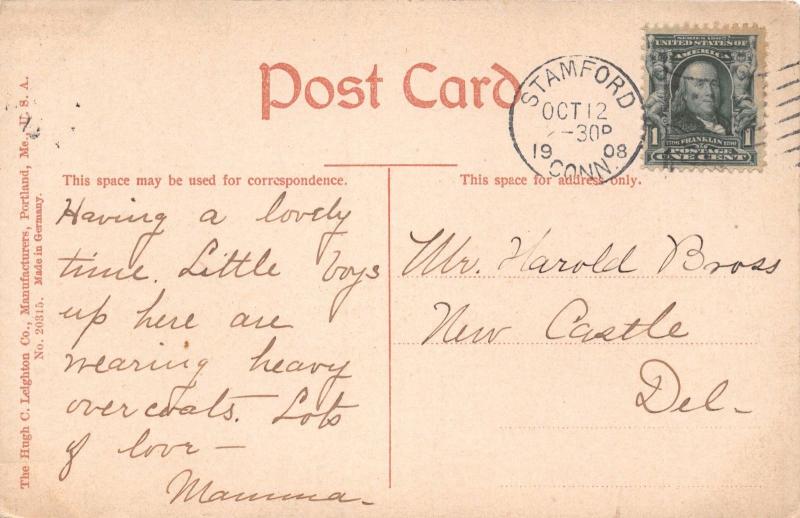 Post Card
STAMFORD
OCT 12
-30P
1908
CONN.
SERIES 1902
UNITED STATES OF
AMERICA
1 FRANKLIN 1
POSTAGE
ONE CENT
This space may be used for correspondence.
This space for address only.
Having a lovely
time. Little boys
up here are
wearing heavy
overcoats. Lots
of love —
Mamma-
Mr. Harold Bross
New Castle
Del-
The Hugh C. Leighton Co., Manufacturers, Portland, Me., U. S. A.
No. 20315. Made in Germany.